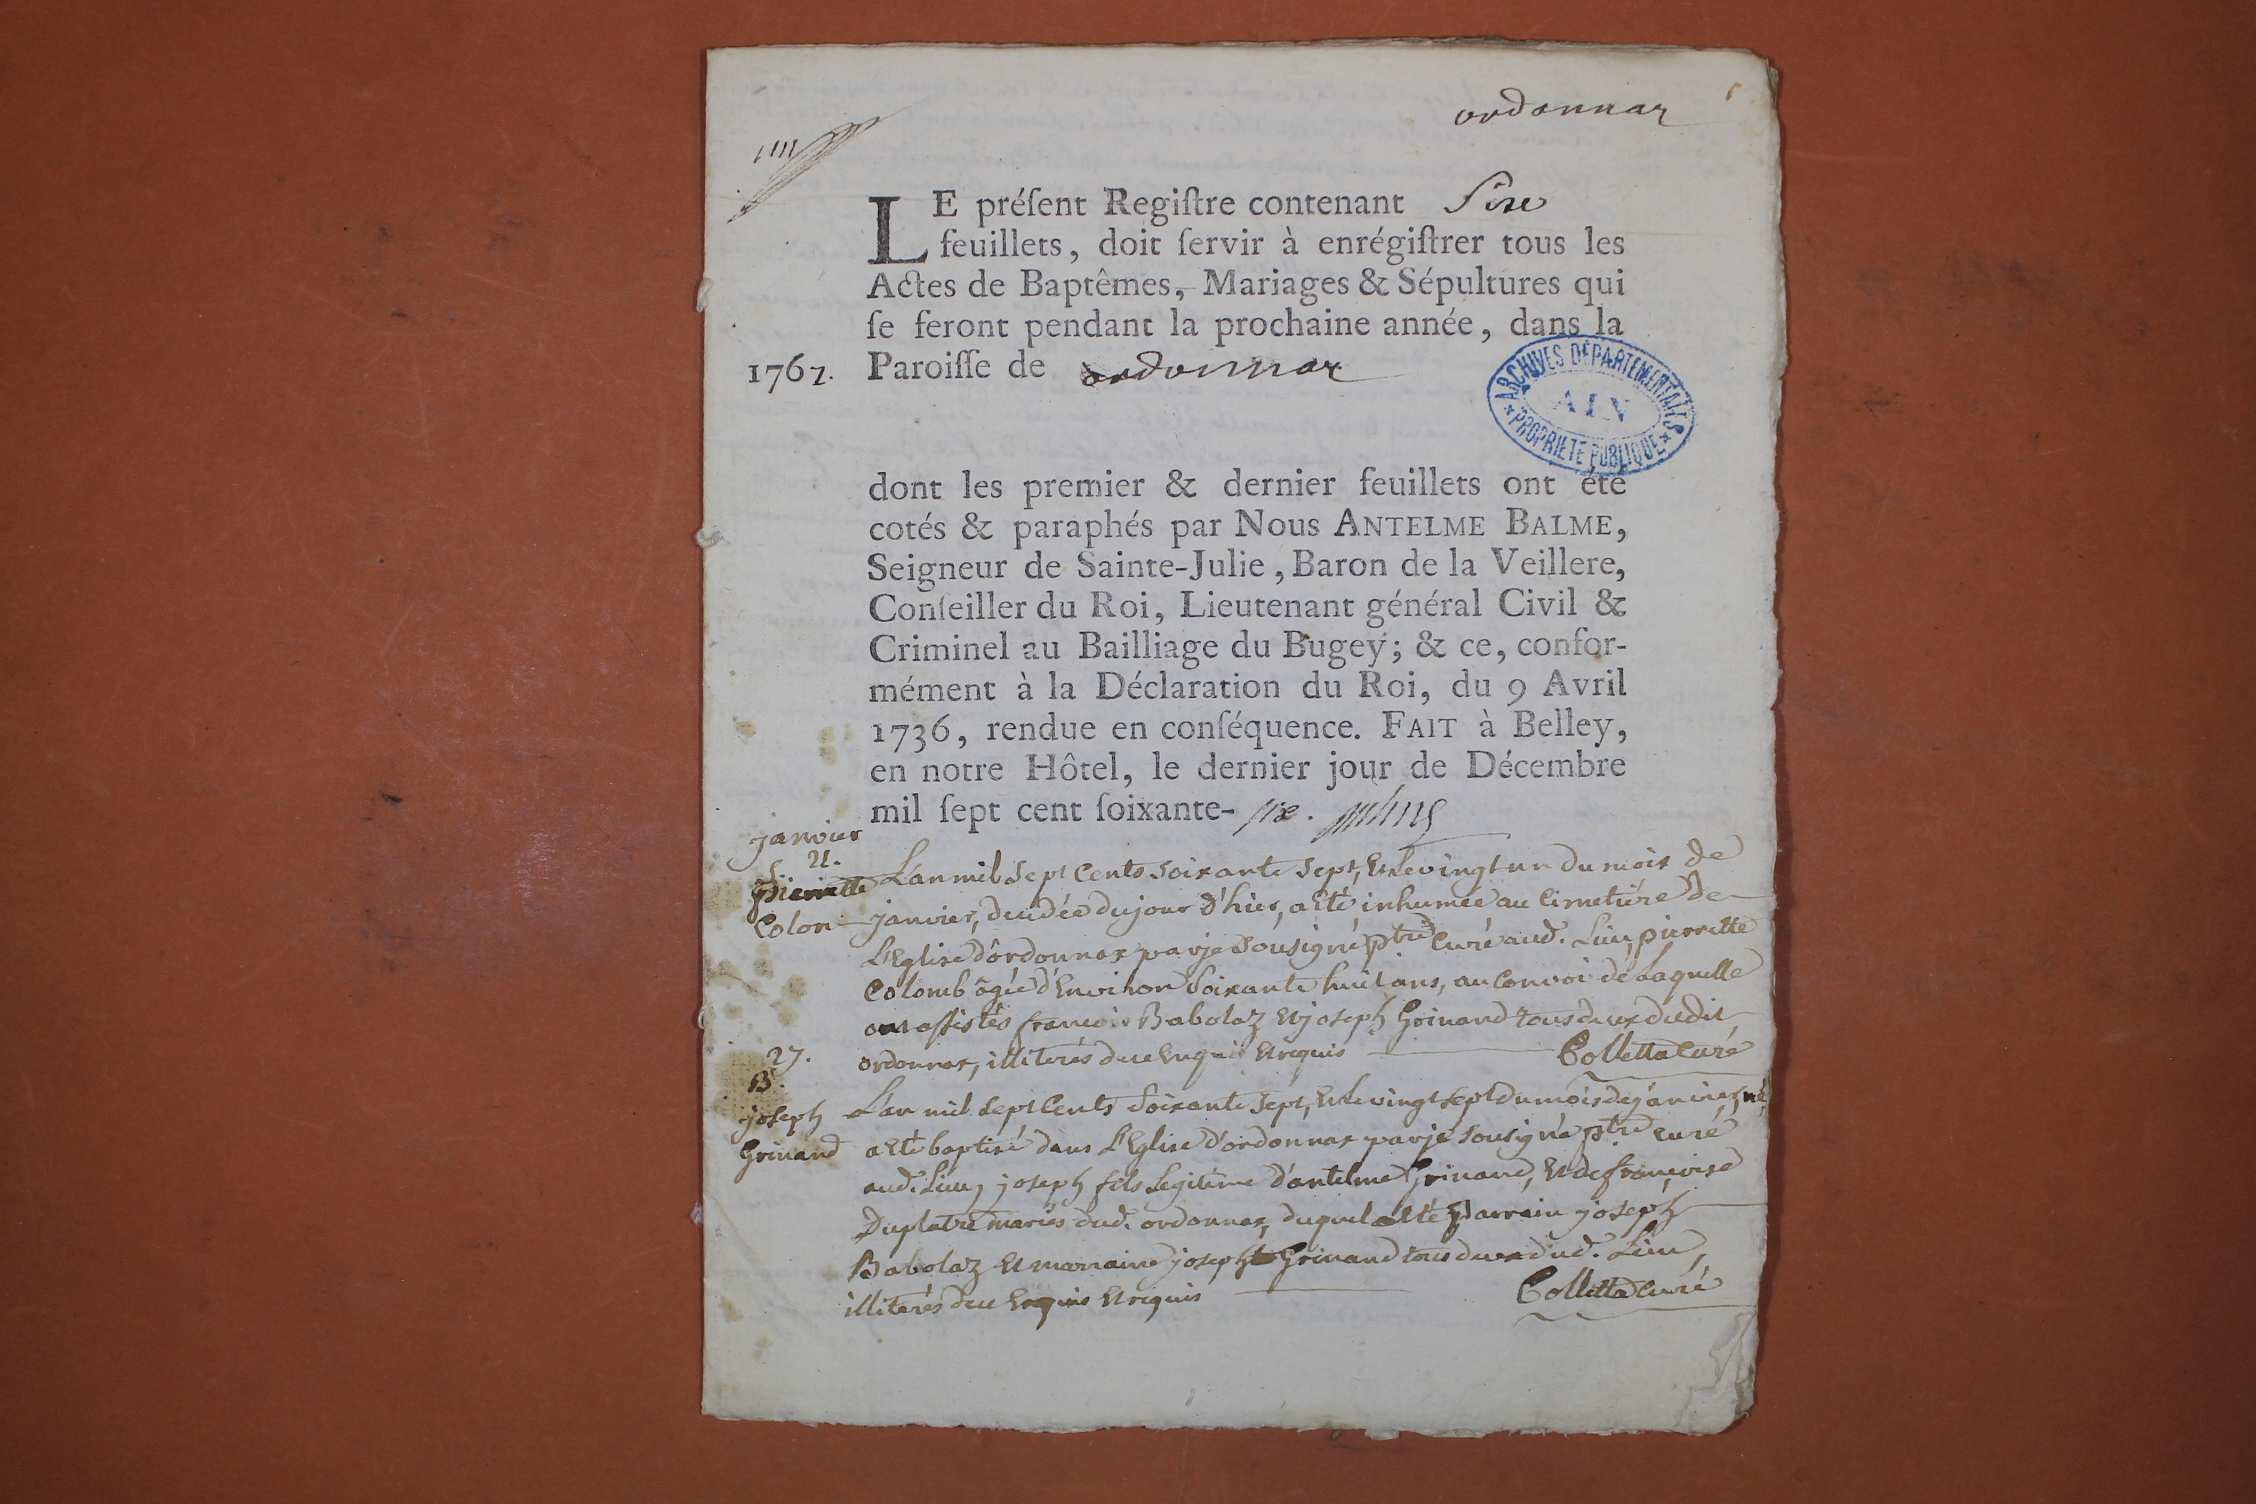 ordonnaz
LE préſent Regiſtre contenant Six
feuillets, doit ſervir à enrégiſtrer tous les
Actes de Baptêmes, Mariages & Sépultures qui
ſe feront pendant la prochaine année, dans la
1767. Paroiſſe de ordonnaz
ARCHIVES DÉPARTEMENTALES
AIN
PROPRIÉTÉ PUBLIQUE
dont les premier & dernier feuillets ont été
cotés & paraphés par Nous ANTELME BALME,
Seigneur de Sainte-Julie, Baron de la Veillere,
Conſeiller du Roi, Lieutenant général Civil &
Criminel au Bailliage du Bugey; & ce, confor-
mément à la Déclaration du Roi, du 9 Avril
1736, rendue en conſéquence. FAIT à Belley,
en notre Hôtel, le dernier jour de Décembre
mil ſept cent ſoixante-six.
janvier
21.
S
pierrette
Colon
L'an mil Sept Cents Soixante Sept, Et le vingt un du mois de
janvier, decédée du jour d'hier, a Eté inhumée au Cimetiére de
L'Eglise d'ordonnaz par je Sousigné ptre Curé aud. Lieu, pierrette
Colomb âgée d'Environ Soixante huit ans, au Convoi de Laquelle
ont assistés francois Babolaz Et joseph Grinand tous deux dudit
ordonnaz, illiterés de ce Enquis Et requis Colletta Curé
27.
B.
joseph
Grinand
L'an mil Sept Cents Soixante Sept, Et le vingt sept du mois de janvier, né,
a Eté baptisé dans L'Eglise d'ordonnaz par je Sousigné ptre curé
aud. Lieu, joseph fils Legitime d'antelme Grinand, Et de françoise
Duplatre mariés dud. ordonnaz, duquel a Eté parrain joseph
Babolaz Et marraine josephte Grinand tous deux dud. Lieu,
illiterés de ce Enquis Et requis Colletta Curé